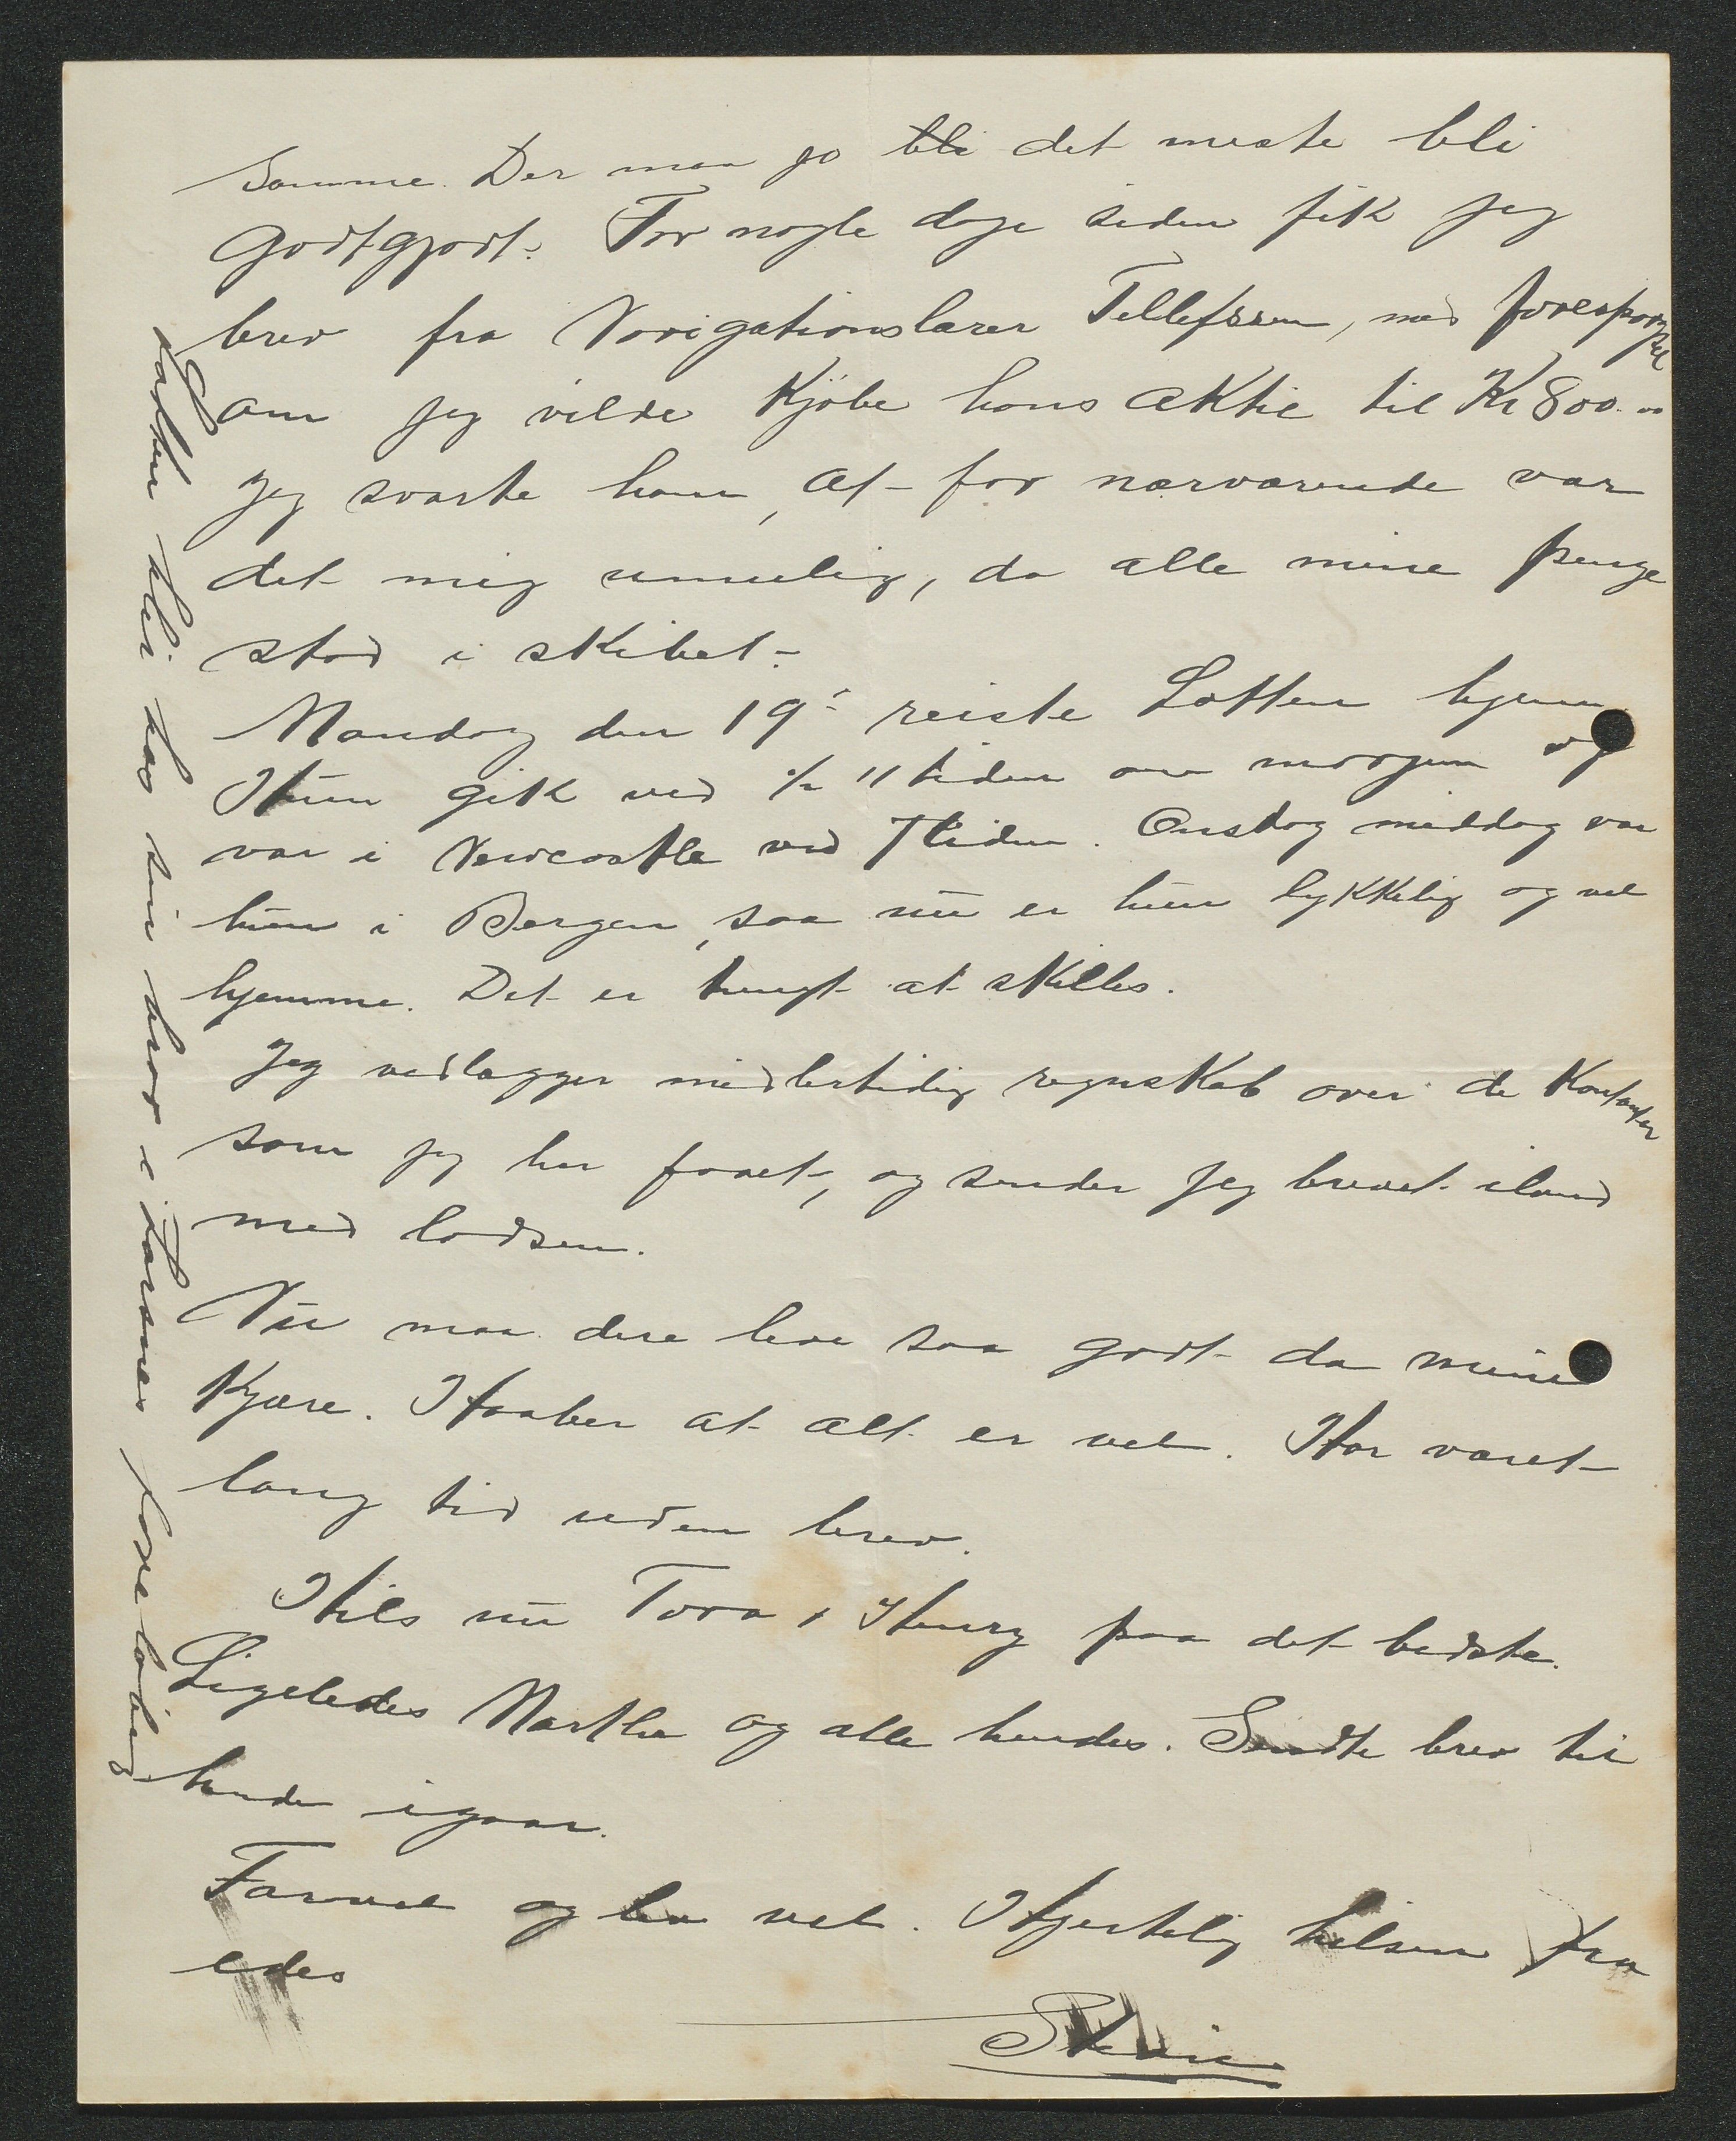 Somme. Der maa jo bli det meste bli
godtgjort. For nogle dage siden fik jeg
brev fra Navigationslærer Tellefsen, med forespørgsel
om jeg vilde kjöbe hans aktie til Kr 800.00
Jeg svarte ham, at for nærværende var
det mig umulig, da alle mine penge
stod i skibet.
Mandag den 19' reiste Lotten hjem.
Hun gik ved ½ 11 tiden om morgenen og
var i Newcastle ved 7 tiden. Onsdag middag var
hun i Bergen, saa nu er hun lykkelig og vel
hjemme. Det er tungt at skilles.
Jeg vedlægger midlertidig regnskab over de Kontanter
som jeg har faaet, og sender jeg brevet iland
med lodsen.
Nu maa dere leve saa godt da mine
Kjære. Haaber at alt er vel. Har været
lang tid uden brev.
Hils nu Tora & Henry paa det bedste.
Ligeledes Marthe og alle hendes. Sendte brev til
hende igaar.
Farvel og lev vel. Hjertelig hilsen fra
edes
Lotten blir hos sin bror i foreløbig